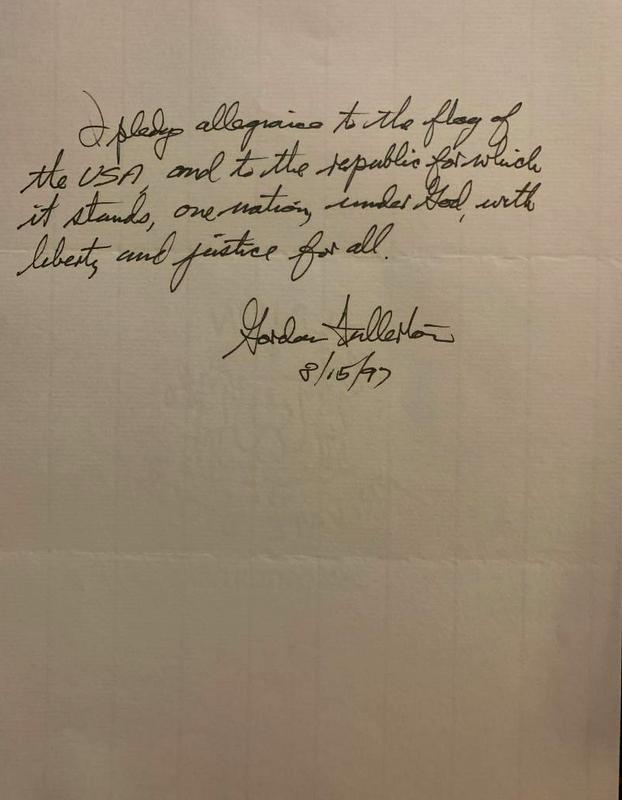 I pledge allegraince to the flag of
the USA, and to the republic for which
it stands, one nation, under God, with
liberty and justice for all.
Gordon Fullerton
8/15/97